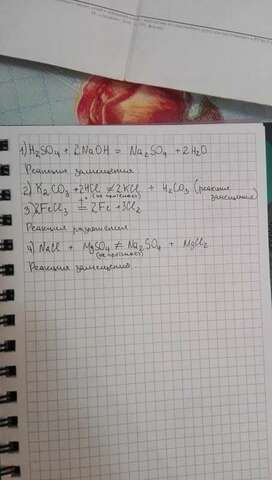 1) H₂SO₄ + 2NaOH = Na₂SO₄ + 2H₂O
Реакция замещения
2) K₂CO₃ + 2HCl ≠ 2KCl + H₂CO₃ (реакция
(не протекает) замещения)
3) 2FeCl₃ = 2Fe + 3Cl₂
Реакция разложения
4) NaCl + MgSO₄ ≠ Na₂SO₄ + MgCl₂
(не протекает)
Реакция замещения